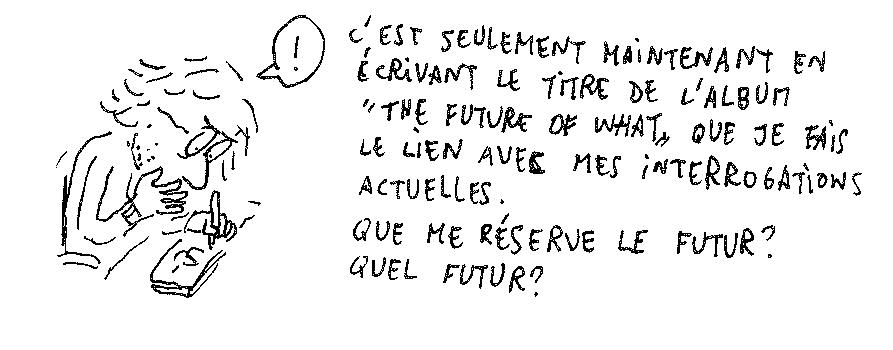 !
C'EST SEULEMENT MAINTENANT EN
ÉCRIVANT LE TITRE DE L'ALBUM
"THE FUTURE OF WHAT" QUE JE FAIS
LE LIEN AVEC MES INTERROGATIONS
ACTUELLES.
QUE ME RÉSERVE LE FUTUR?
QUEL FUTUR?